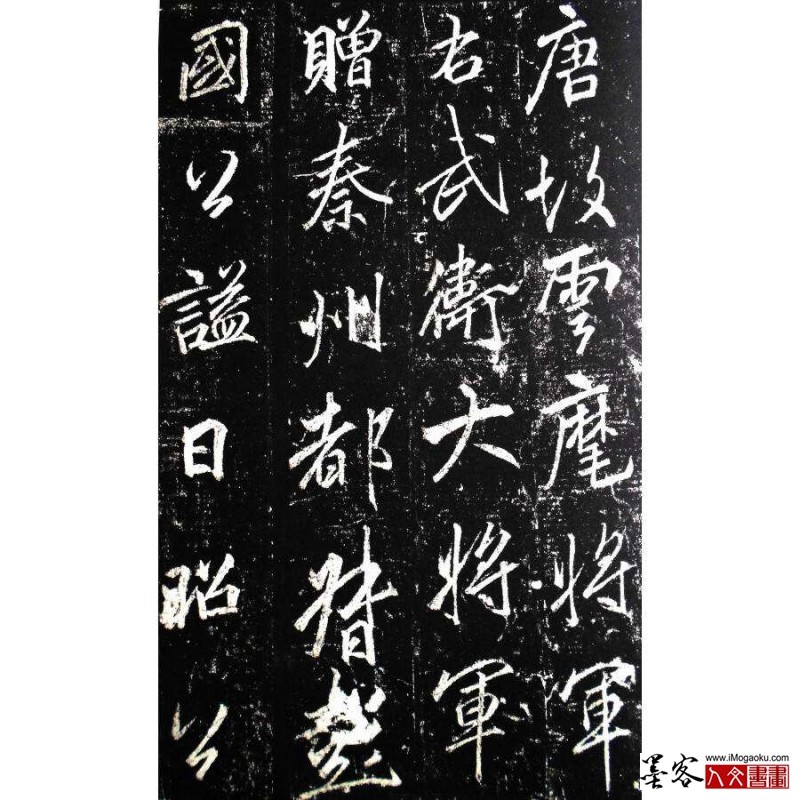 唐故雲麾將軍
右武衛大將軍
贈秦州都督彭
國公謚曰昭公
www.iMogaoku.com
墨客
人文書畫